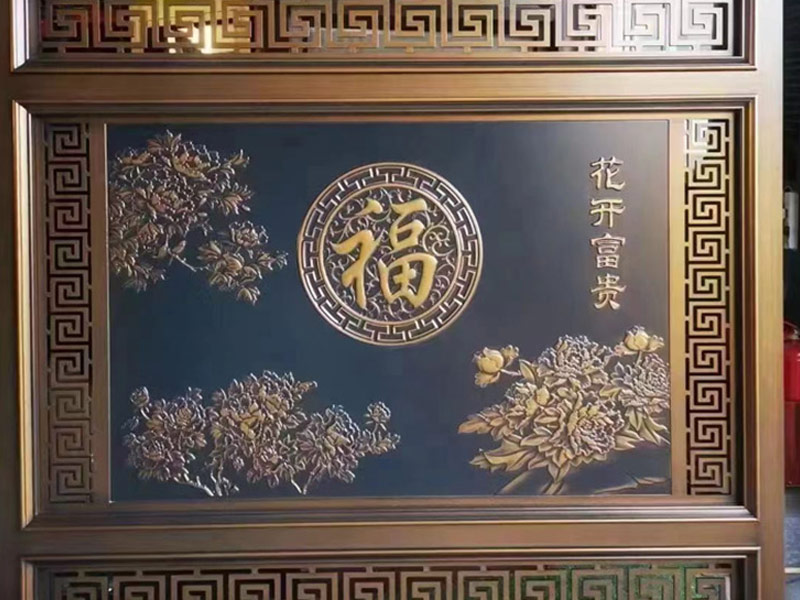 福
花开富贵